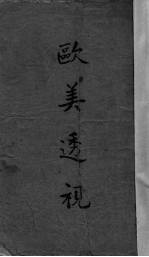 歐美透視